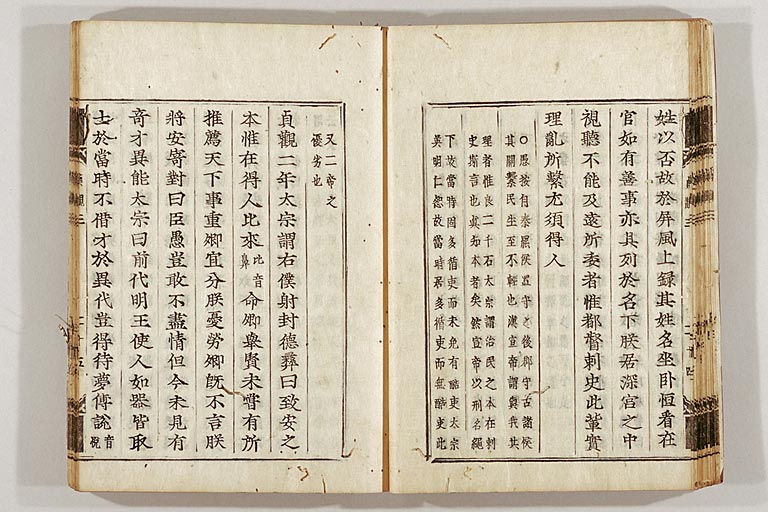 姓以否故於屏風上録其姓名坐卧恒看在
官如有善事亦具列於名下朕居深宮之中
視聽不能及遠所委者惟都督刺史此輩實
理亂所繫尤須得人
○愚按自秦罷侯置守之後郡守古諸侯
其關繫民生至不輕也漢宣帝謂與我共
理者惟良二千石太宗謂治民之本在刺
史斯言也眞知本者矣然宣帝以刑名繩
下故當時固多循吏而未免有酷吏太宗
英明仁恕故當時居多循吏而無酷吏此
又二帝之
優劣也
貞觀二年太宗謂右僕射封德彞曰致安之
本惟在得人比來比音鼻命卿舉賢未嘗有所
推薦天下事重卿宜分朕憂勞卿旣不言朕
將安寄對曰臣愚豈敢不盡情但今未見有
竒才異能太宗曰前代明王使人如器皆取
士於當時不借才於異代豈得待夢傅說音悅